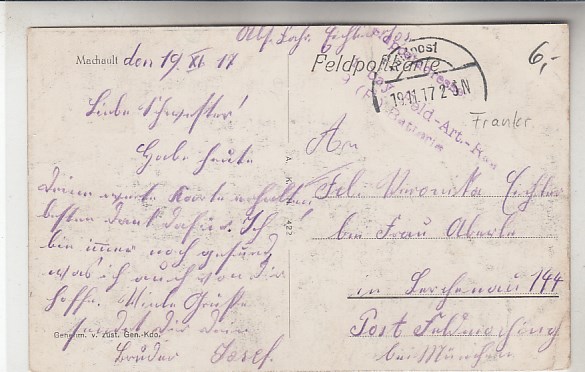 Abs. Fahr. Eichler Jos.
Machault den 19. XI. 17
Feldpostkarte
6,-
19.11.17 2-3 N
Feld-Art.-Reg
Batterie
Frankr
Liebe Schwester!
Habe heute
Deine erste Karte erhalten,
besten Dank dafür. Ich
bin immer noch gesund,
was ich auch von dir
hoffe. Viele Grüße
sendet Dir dein
Bruder Josef.
Genehm. v. zust. Gen.-Kdo.
A. K. 422
An
Frl. Veronika Eichler
bei Frau Aberle
in Lerchenau 144
Post Feldmoching
bei München